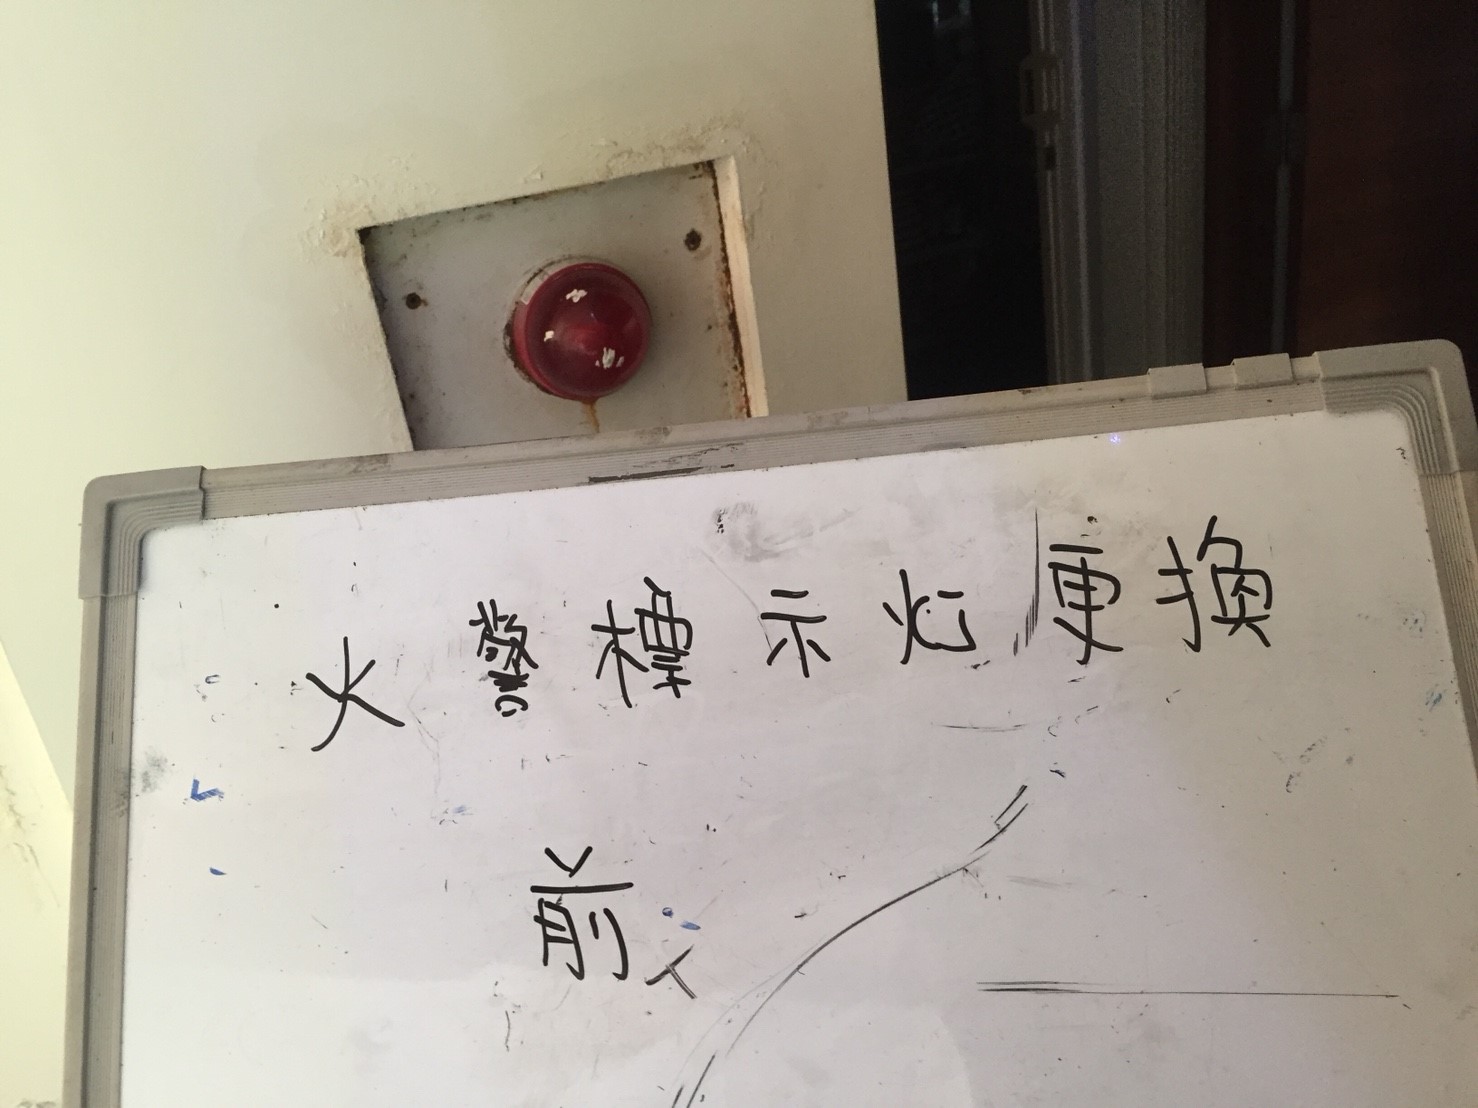 火警標示灯更換
前